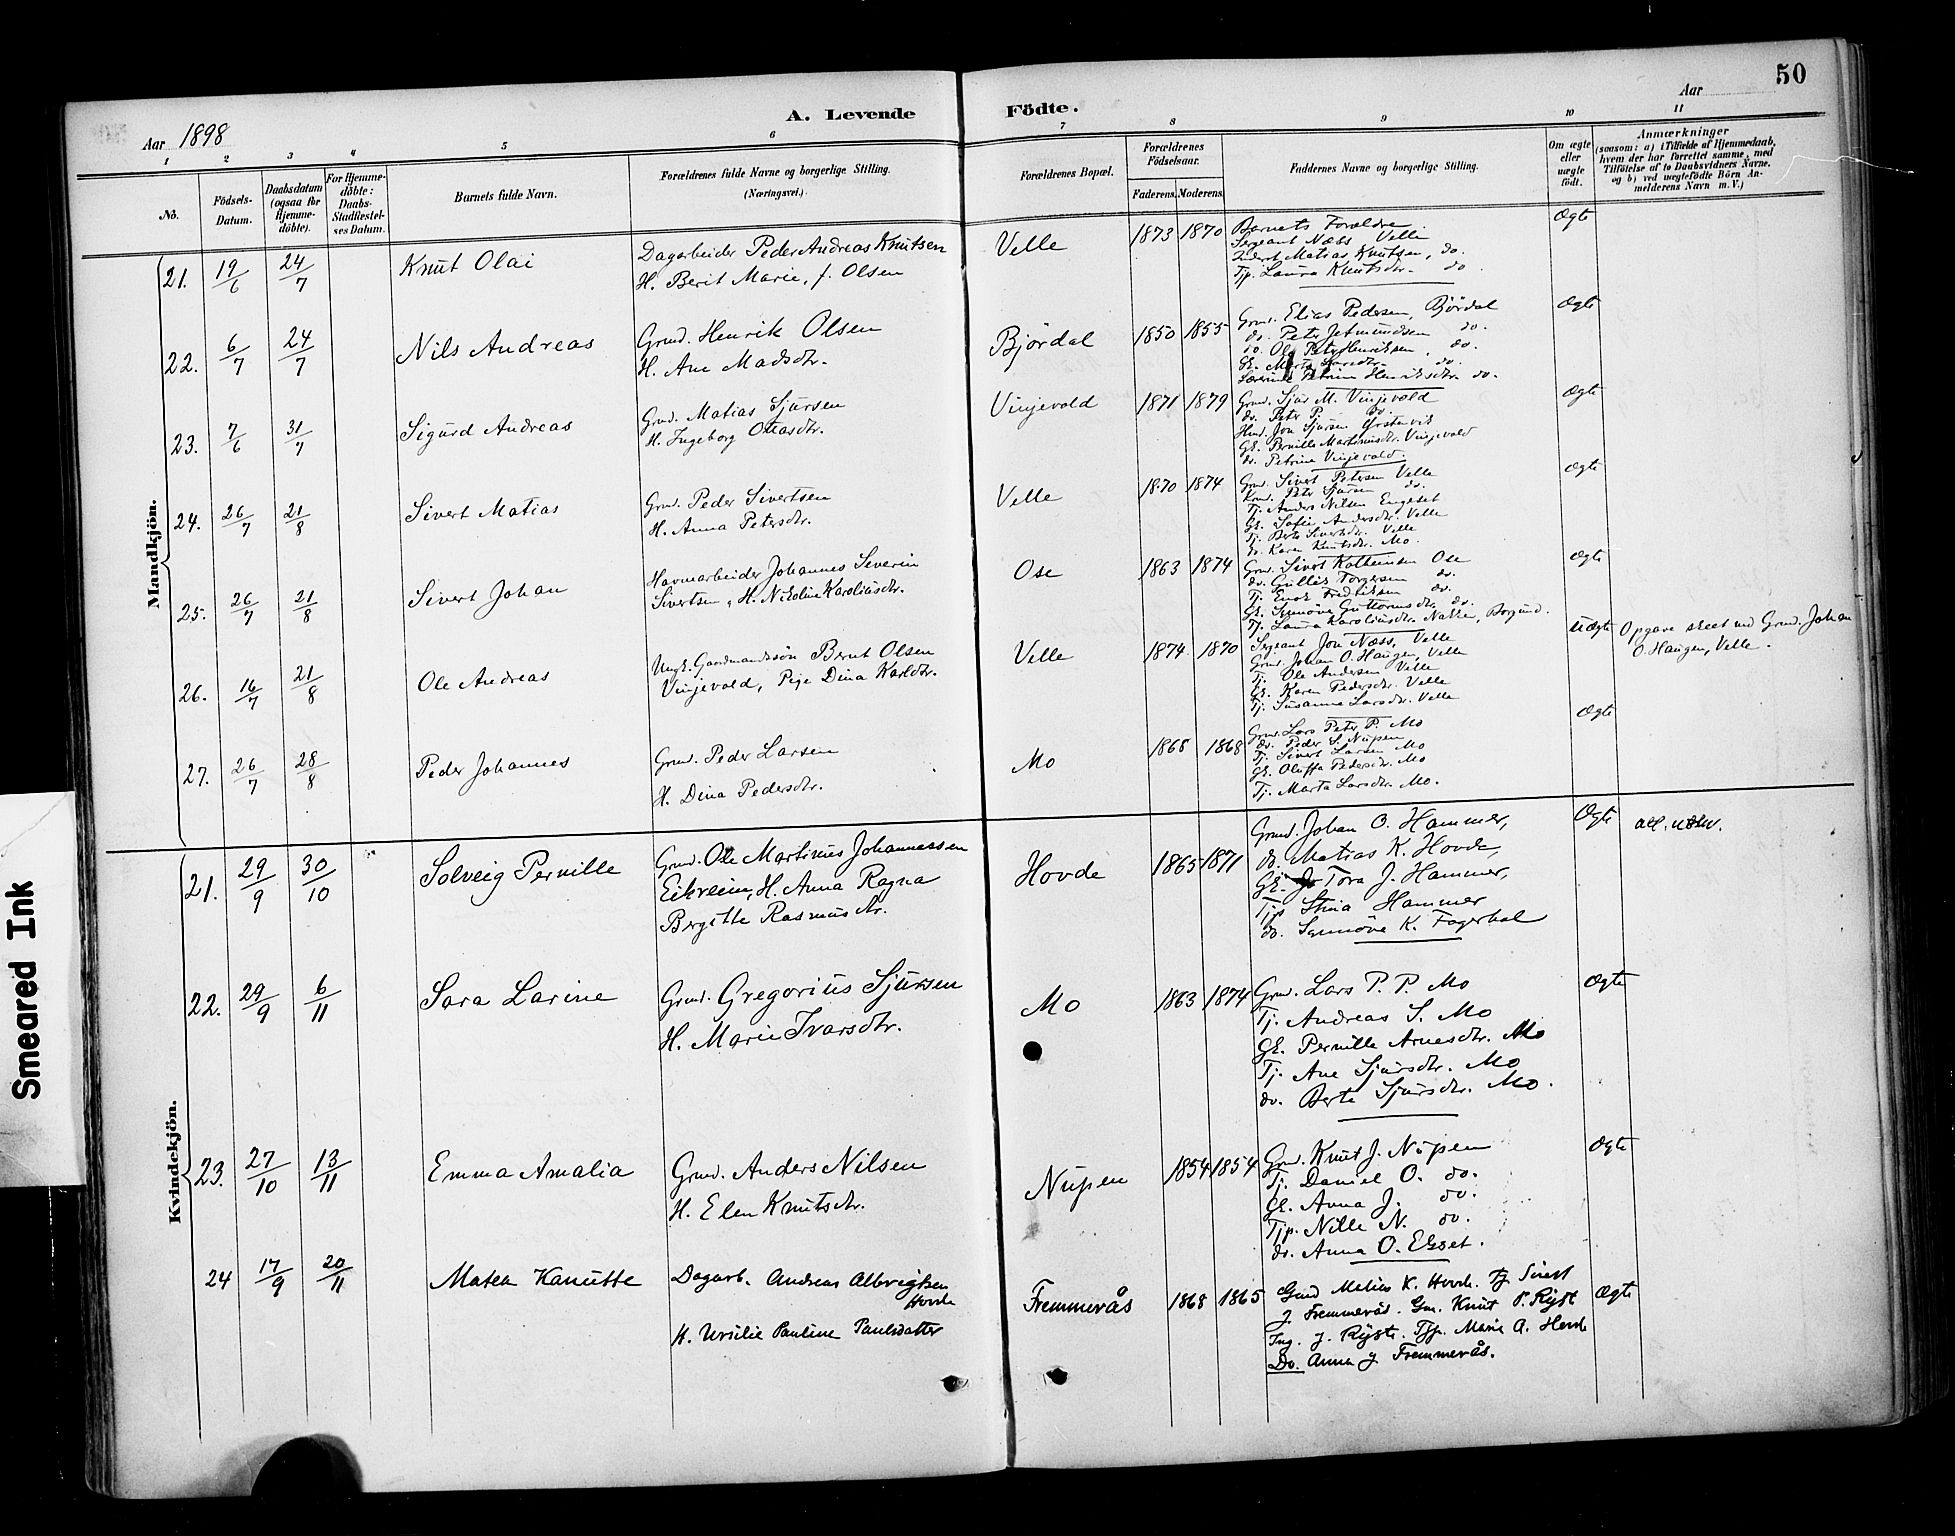 50
A. Levende Födte.
Aar 1898
Aar
1 2 3 4 5 6 7 8 9 10 11
No.
Födsels-Datum.
Daabsdatum (ogsaa for Hjemmedöbte).
For Hjemmedöbte: Daabs-Stadfæstelses Datum.
Barnets fulde Navn.
Forældrenes fulde Navne og borgerlige Stilling. (Næringsvei.)
Forældrenes Bopæl.
Forældrenes Födselsaar.
Faderens. Moderens.
Faddernes Navne og borgerlige Stilling.
Om ægte eller uægte födt.
Anmærkninger
(saasom: a) i Tilfælde af Hjemmedaab, hvem der har forrettet samme, med Tilföielse af to Daabsvidners Navne, og b) ved uægtefödte Börn Anmelderens Navn m. V.)
Mandkjön.
21. 19/6 24/7 Knut Olai
Dagarbeider Peder Andreas Knutsen
H. Berit Marie, f. Olsen
Velle 1873 1870
Barnets Forældre
Sergeant Næss Velle
Matias Knutsen, do.
Tjp. Laura Knutsdtr. do
Ægte
22. 6/7 24/7 Nils Andreas
Grmd. Henrik Olsen
H. Ane Madsdtr.
Björdal 1850 1855
Grmd. Elias Pedersen, Björdal
do. Peter Jetmundsen do.
do. Ole Peter Henriksen, do.
Gk. Marta Larsdtr. do.
Petrine Henriksdtr. do.
Ægte
23. 7/6 31/7 Sigurd Andreas
Grmd. Matias Sjursen
H. Ingeborg Olsdtr.
Vinjevold 1871 1879
Grmd. Sjur M. Vinjevold
do. Peter P. do.
Jon Sjursen Ørstavik
Gk. Pernille Martinusdtr. Vinjevold
do. Petrine Vinjevold.
Ægte
24. 26/7 21/8 Sivert Matias
Grmd. Peder Sivertsen
H. Anna Petersdtr.
Velle 1870 1874
Grmd. Sivert Petersen Velle
Peter Sjursen do.
Tj. Anders Nilsen Engeset
Gk. Sofie Andersdtr. Velle
Tj. Berte Sivertsdtr. Velle
do. Karen Knutsdtr. Mo.
Ægte
25. 26/7 21/8 Sivert Johan
Havnarbeider Johannes Severin
Sivertsen, H. Nikoline Karoliusdtr.
Ose 1863 1874
Grmd. Sivert Ose
do. Gullik Torgersen do.
Tj. Enok Fredriksen do.
Gk. Synnöve Guttormsdtr. do.
Tj. Laura Karoliusdtr. Nakken, Borgund.
Ægte
26. 16/7 21/8 Ole Andreas
Ungk. Gaardmandssön Bernt Olsen
Vinjevold, Pige Dina Karldtr.
Velle 1874 1870
Sergeant Jon Næss, Velle
Grmd. Johan O. Haugen, Velle
Tj. Ole Andersen Velle
Gk. Karen Pedersdtr. Velle
Tj. Susanne Larsdtr. Velle
Uægte
Opgave skeet ved Grmd. Johan
O. Haugen, Velle.
27. 26/7 28/8 Peder Johannes
Grmd. Peder Larsen
H. Dina Pedersdtr.
Mo 1868 1868
Grmd. Lars Peter P. Mo
do. Peder S. Nupen
Tj. Sivert Larsen Mo
Gk. Oluffa Pedersdtr. Mo
Tj. Marta Larsdtr. Mo.
Ægte
Kvindekjön.
21. 29/9 30/10 Solveig Pernille
Grmd. Ole Martinus Johannessen
Eikreim, H. Anna Ragna
Bergitte Rasmusdtr.
Hovde 1865 1871
Grmd. Johan O. Hammer,
do. Matias K. Hovde,
Gk. Tora J. Hammer,
Tjp. Stina Hammer
do. Synnöve K. Fagerhol
Ægte
22. 29/9 6/11 Sara Larine
Grmd. Gregorius Sjursen
H. Marie Ivarsdtr.
Mo 1863 1874
Grmd. Lars P. P. Mo
Tj. Andreas S. Mo
Gk. Pernille Arnesdtr. Mo
Tj. Ane Sjursdtr. Mo
do. Berte Sjursdtr. Mo.
Ægte
23. 27/10 13/11 Emma Amalia
Grmd. Anders Nilsen
H. Elen Knutsdtr.
Nupen 1854 1854
Grmd. Knut J. Nupen
Tj. Daniel O. do.
Gk. Anna J. do.
Tjp. Nille N. do.
do. Anna O. Ekset.
Ægte
24 17/9 20/11 Matea Kanutte
Dagarb. Andreas Albrigtsen
Hovde
H. Ursilie Pauline Paulsdatter
Fremmerås 1868 1865
Gmd Matias K. Hovde. Tj. Sivert
J. Fremmerås. Gm. Knut P. Ryst
Ing. J. Ryste. Tjp. Marie A. Hovde
Do. Anna J Fremmerås.
Ægte
Smeared Ink